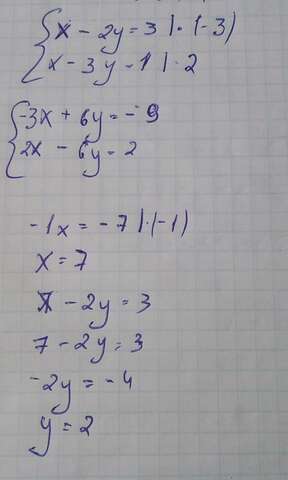 { x - 2y = 3 | · (-3)
{ x - 3y = 1 | · 2
{ -3x + 6y = -9
{ 2x - 6y = 2
-1x = -7 | · (-1)
x = 7
x - 2y = 3
7 - 2y = 3
-2y = -4
y = 2